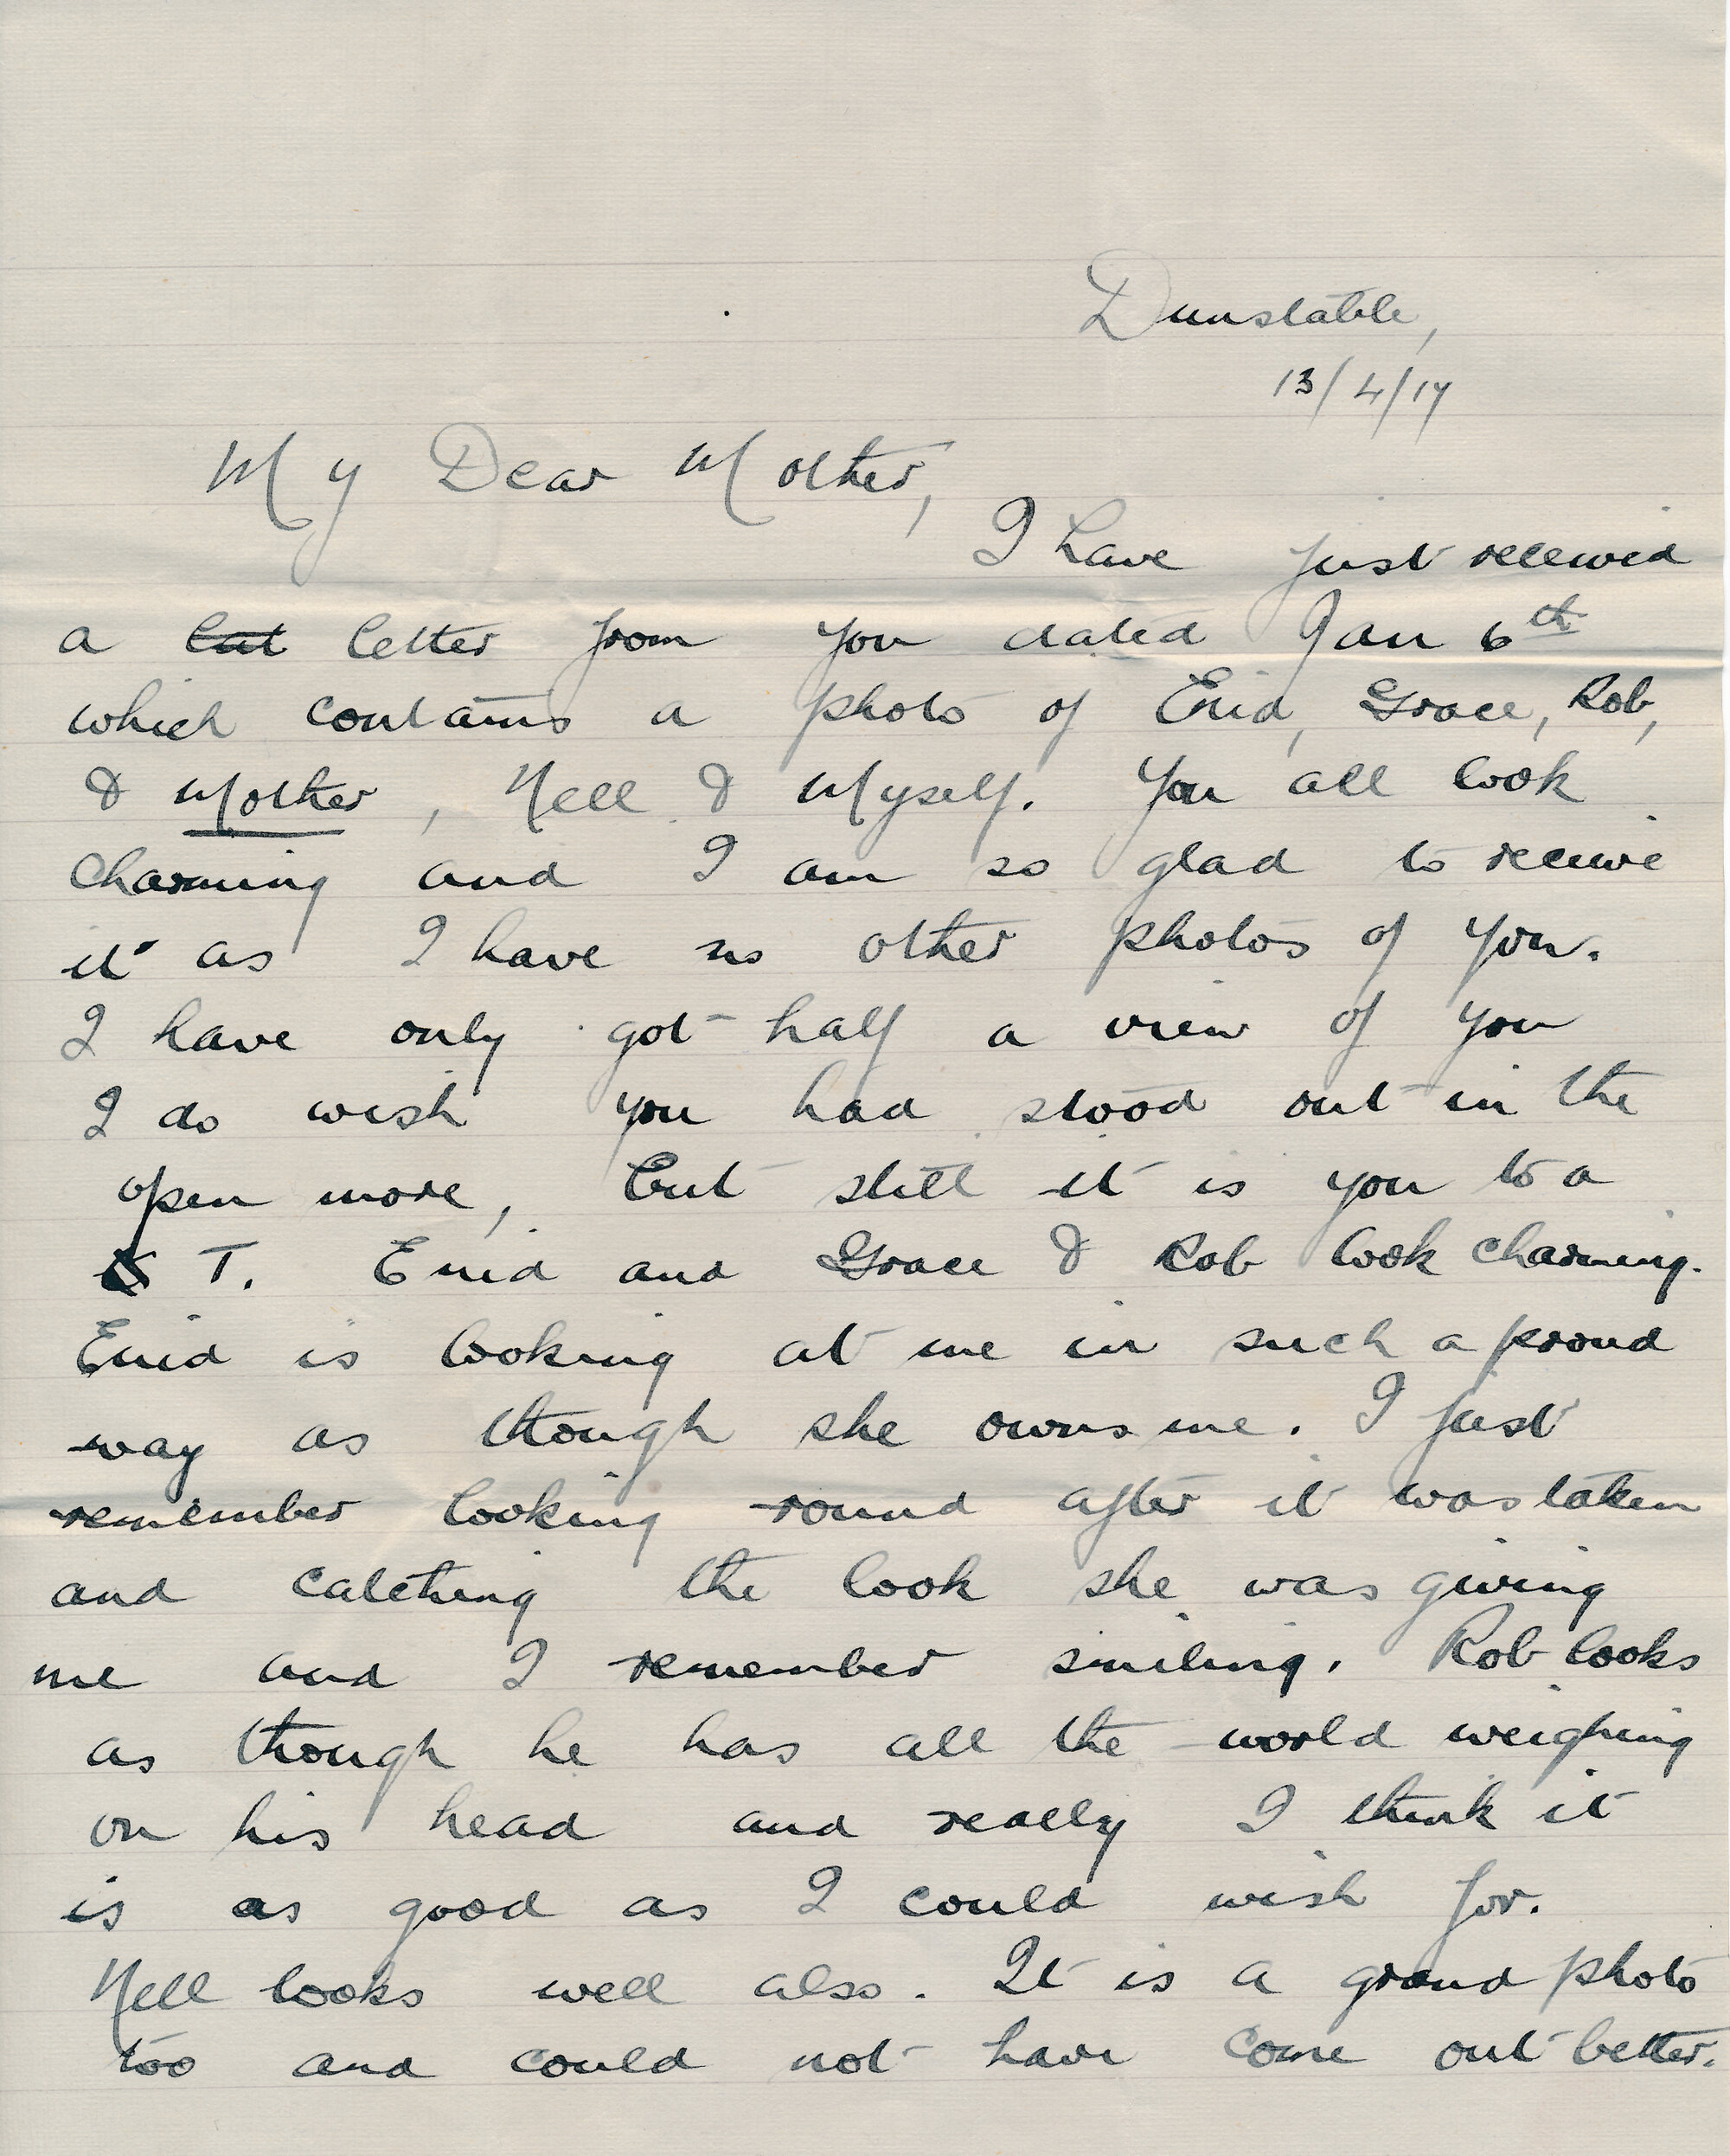 Dunstable,
13/4/17
My Dear Mother,
I have just received
a let letter from you dated Jan 6th
which contains a photo of Enid, Grace, Rob,
& Mother, Nell & Myself. You all look
charming and I am so glad to receive
it as I have no other photos of you.
I have only got half a view of you
I do wish you had stood out in the
open more, but still it is you to a
T. Enid and Grace & Rob look charming.
Enid is looking at me in such a proud
way as though she owns me. I just
remember looking round after it was taken
and catching the look she was giving
me and I remember smiling. Rob looks
as though he has all the world weighing
on his head and really I think it
is as good as I could wish for.
Nell looks well also. It is a grand photo
too and could not have come out better.